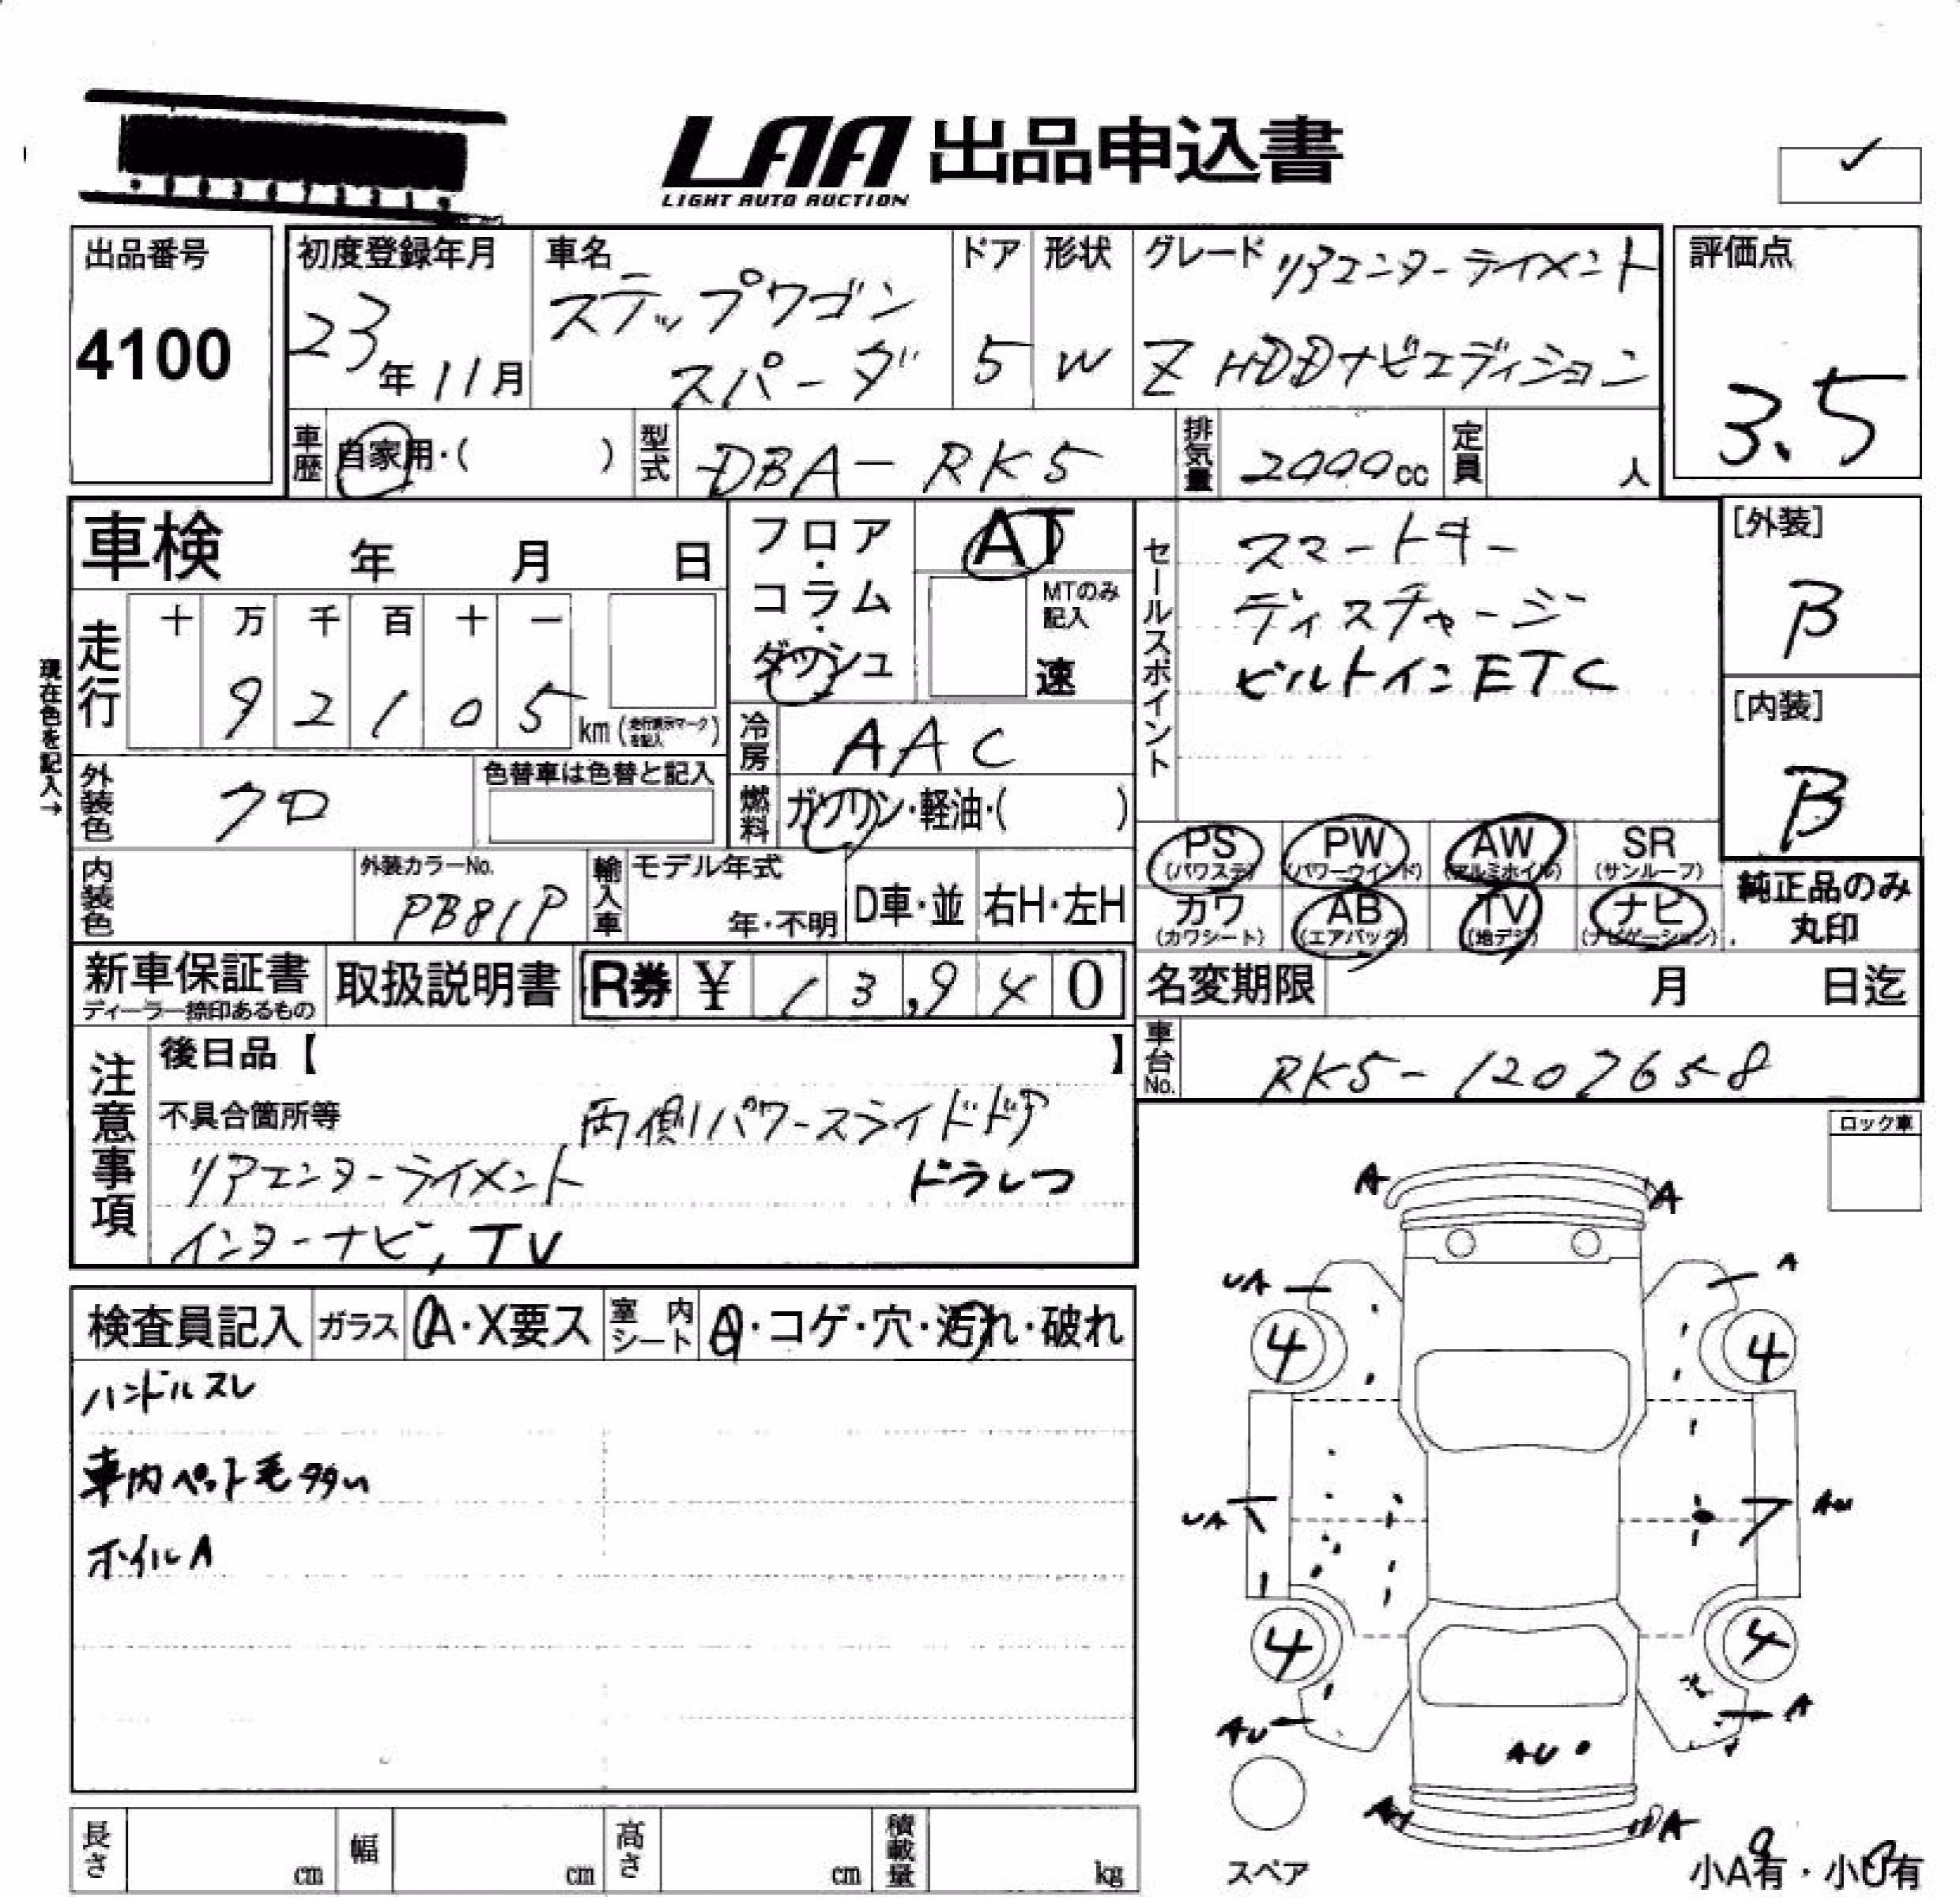 LAA 出品申込書
LIGHT AUTO AUCTION
出品番号
4100
初度登録年月
23年11月
車名
ステップワゴン
スパーダ
ドア
5
形状
W
グレード リアエンターテイメント
Z HDDナビエディション
評価点
3.5
車歴 自家用・( )
型式 DBA-RK5
排気量 2000cc
定員 人
車検 年 月 日
現在色を記入→
走行 十 万 千 百 十 一
9 2 1 0 5 km (走行表示マークを記入)
フロア・コラム・ダッシュ
AT
MTのみ記入
速
冷房 AAC
燃料 ガソリン・軽油・( )
外装色 クロ
色替車は色替と記入
内装色
外装カラーNo.
PB81P
輸入車
モデル年式
年・不明
D車・並
右H・左H
セールスポイント
スマートキー
ディスチャージ
ビルトインETC
[外装]
B
[内装]
B
PS (パワステ)
PW (パワーウインド)
AW (アルミホイル)
SR (サンルーフ)
カワ (カワシート)
AB (エアバッグ)
TV (地デジ)
ナビ (ナビゲーション)
純正品のみ
丸印
新車保証書
ディーラー捺印あるもの
取扱説明書
R券 ¥ 13,940
名変期限 月 日迄
車台No. RK5-1207658
注意事項
後日品【 】
不具合箇所等 両側パワースライドドア
リアエンターテイメント ドラレコ
インターナビ, TV
ロック車
検査員記入
ガラス A・X要ス
室内シート A・コゲ・穴・汚れ・破れ
ハンドルスレ
車内ペット毛多い
ホイルA
A A
UA A
4 4
UA AU
4 4
AU A
AU
A A
スペア
小A有・小U有
長さ cm
幅 cm
高さ cm
積載量 kg